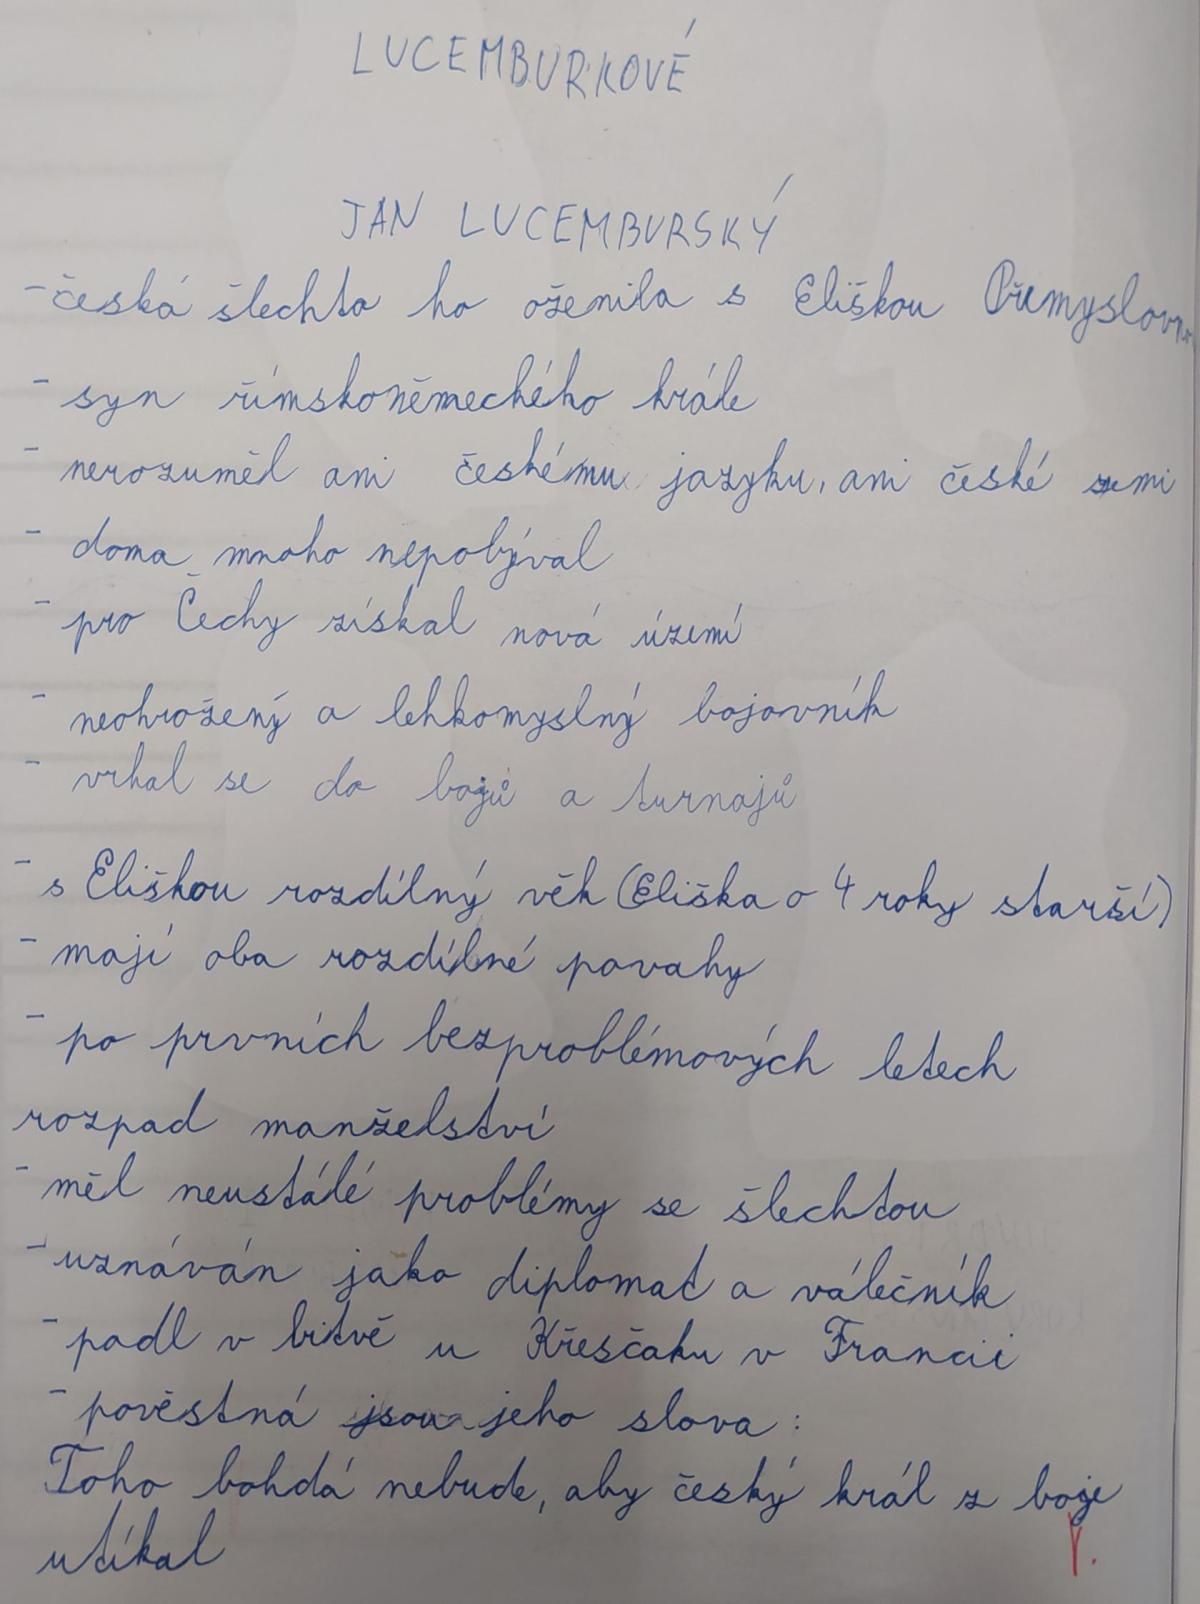 LUCEMBURKOVÉ
JAN LUCEMBURSKÝ
- česká šlechta ho oženila s Eliškou Přemyslovnou
- syn římskoněmeckého krále
- nerozuměl ani českému jazyku, ani české zemi
- doma mnoho nepobýval
- pro Čechy získal nová území
- neohrožený a lehkomyslný bojovník
- vrhal se do bojů a turnajů
- s Eliškou rozdílný věk (Eliška o 4 roky starší)
- mají oba rozdílné povahy
- po prvních bezproblémových letech
rozpad manželství
- měl neustálé problémy se šlechtou
- uznáván jako diplomat a válečník
- padl v bitvě u Křesčaku v Francii
- pověstná jsou jeho slova:
Toho bohdá nebude, aby český král z boje
utíkal